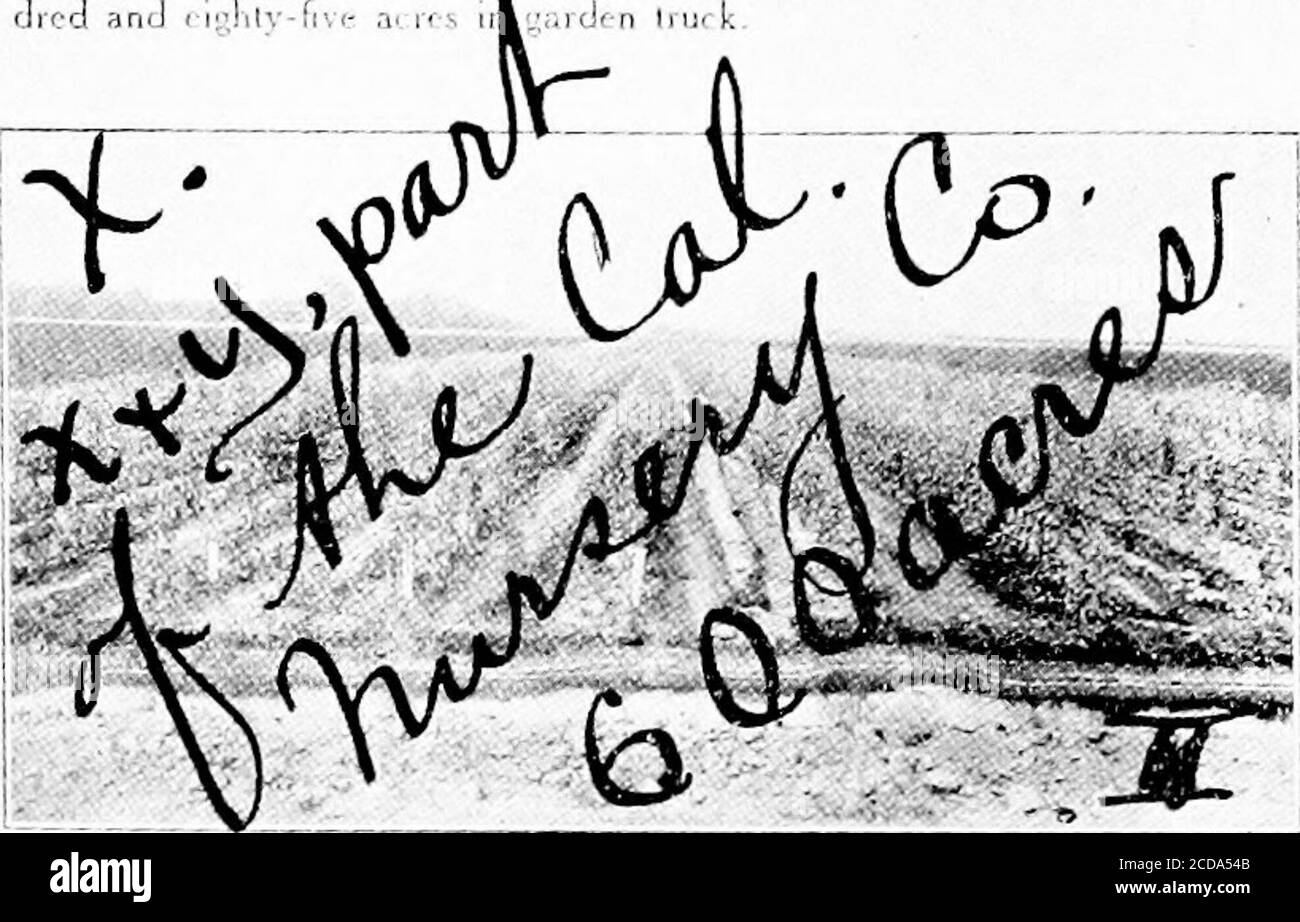 dred and eighty-five acres in garden truck.
X.
X+y, part
of the Cal. Co.
Nursery
600 acres
II
alamy
Image ID: 2CDA54B
www.alamy.com